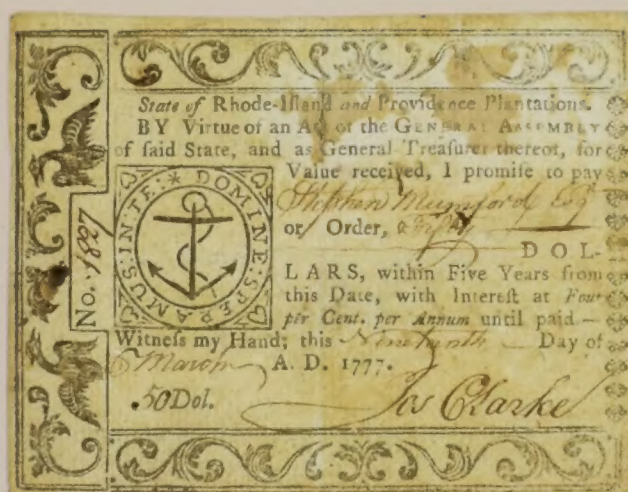 State of Rhode-Iſland and Providence Plantations.
BY Virtue of an Act of the GENERAL ASSEMBLY
of ſaid State, and as General Treaſurer thereof, for
Value received, I promiſe to pay
Stephen Mumford Esqr
or Order, Fifty
DOL-
LARS, within Five Years from
this Date, with Intereſt at Four
per Cent. per Annum until paid —
Witneſs my Hand; this Nineteenth Day of
March A. D. 1777.
.50Dol.
Jos Clarke
No. 1827
IN:TE:* DOMINE:SPERAMUS: